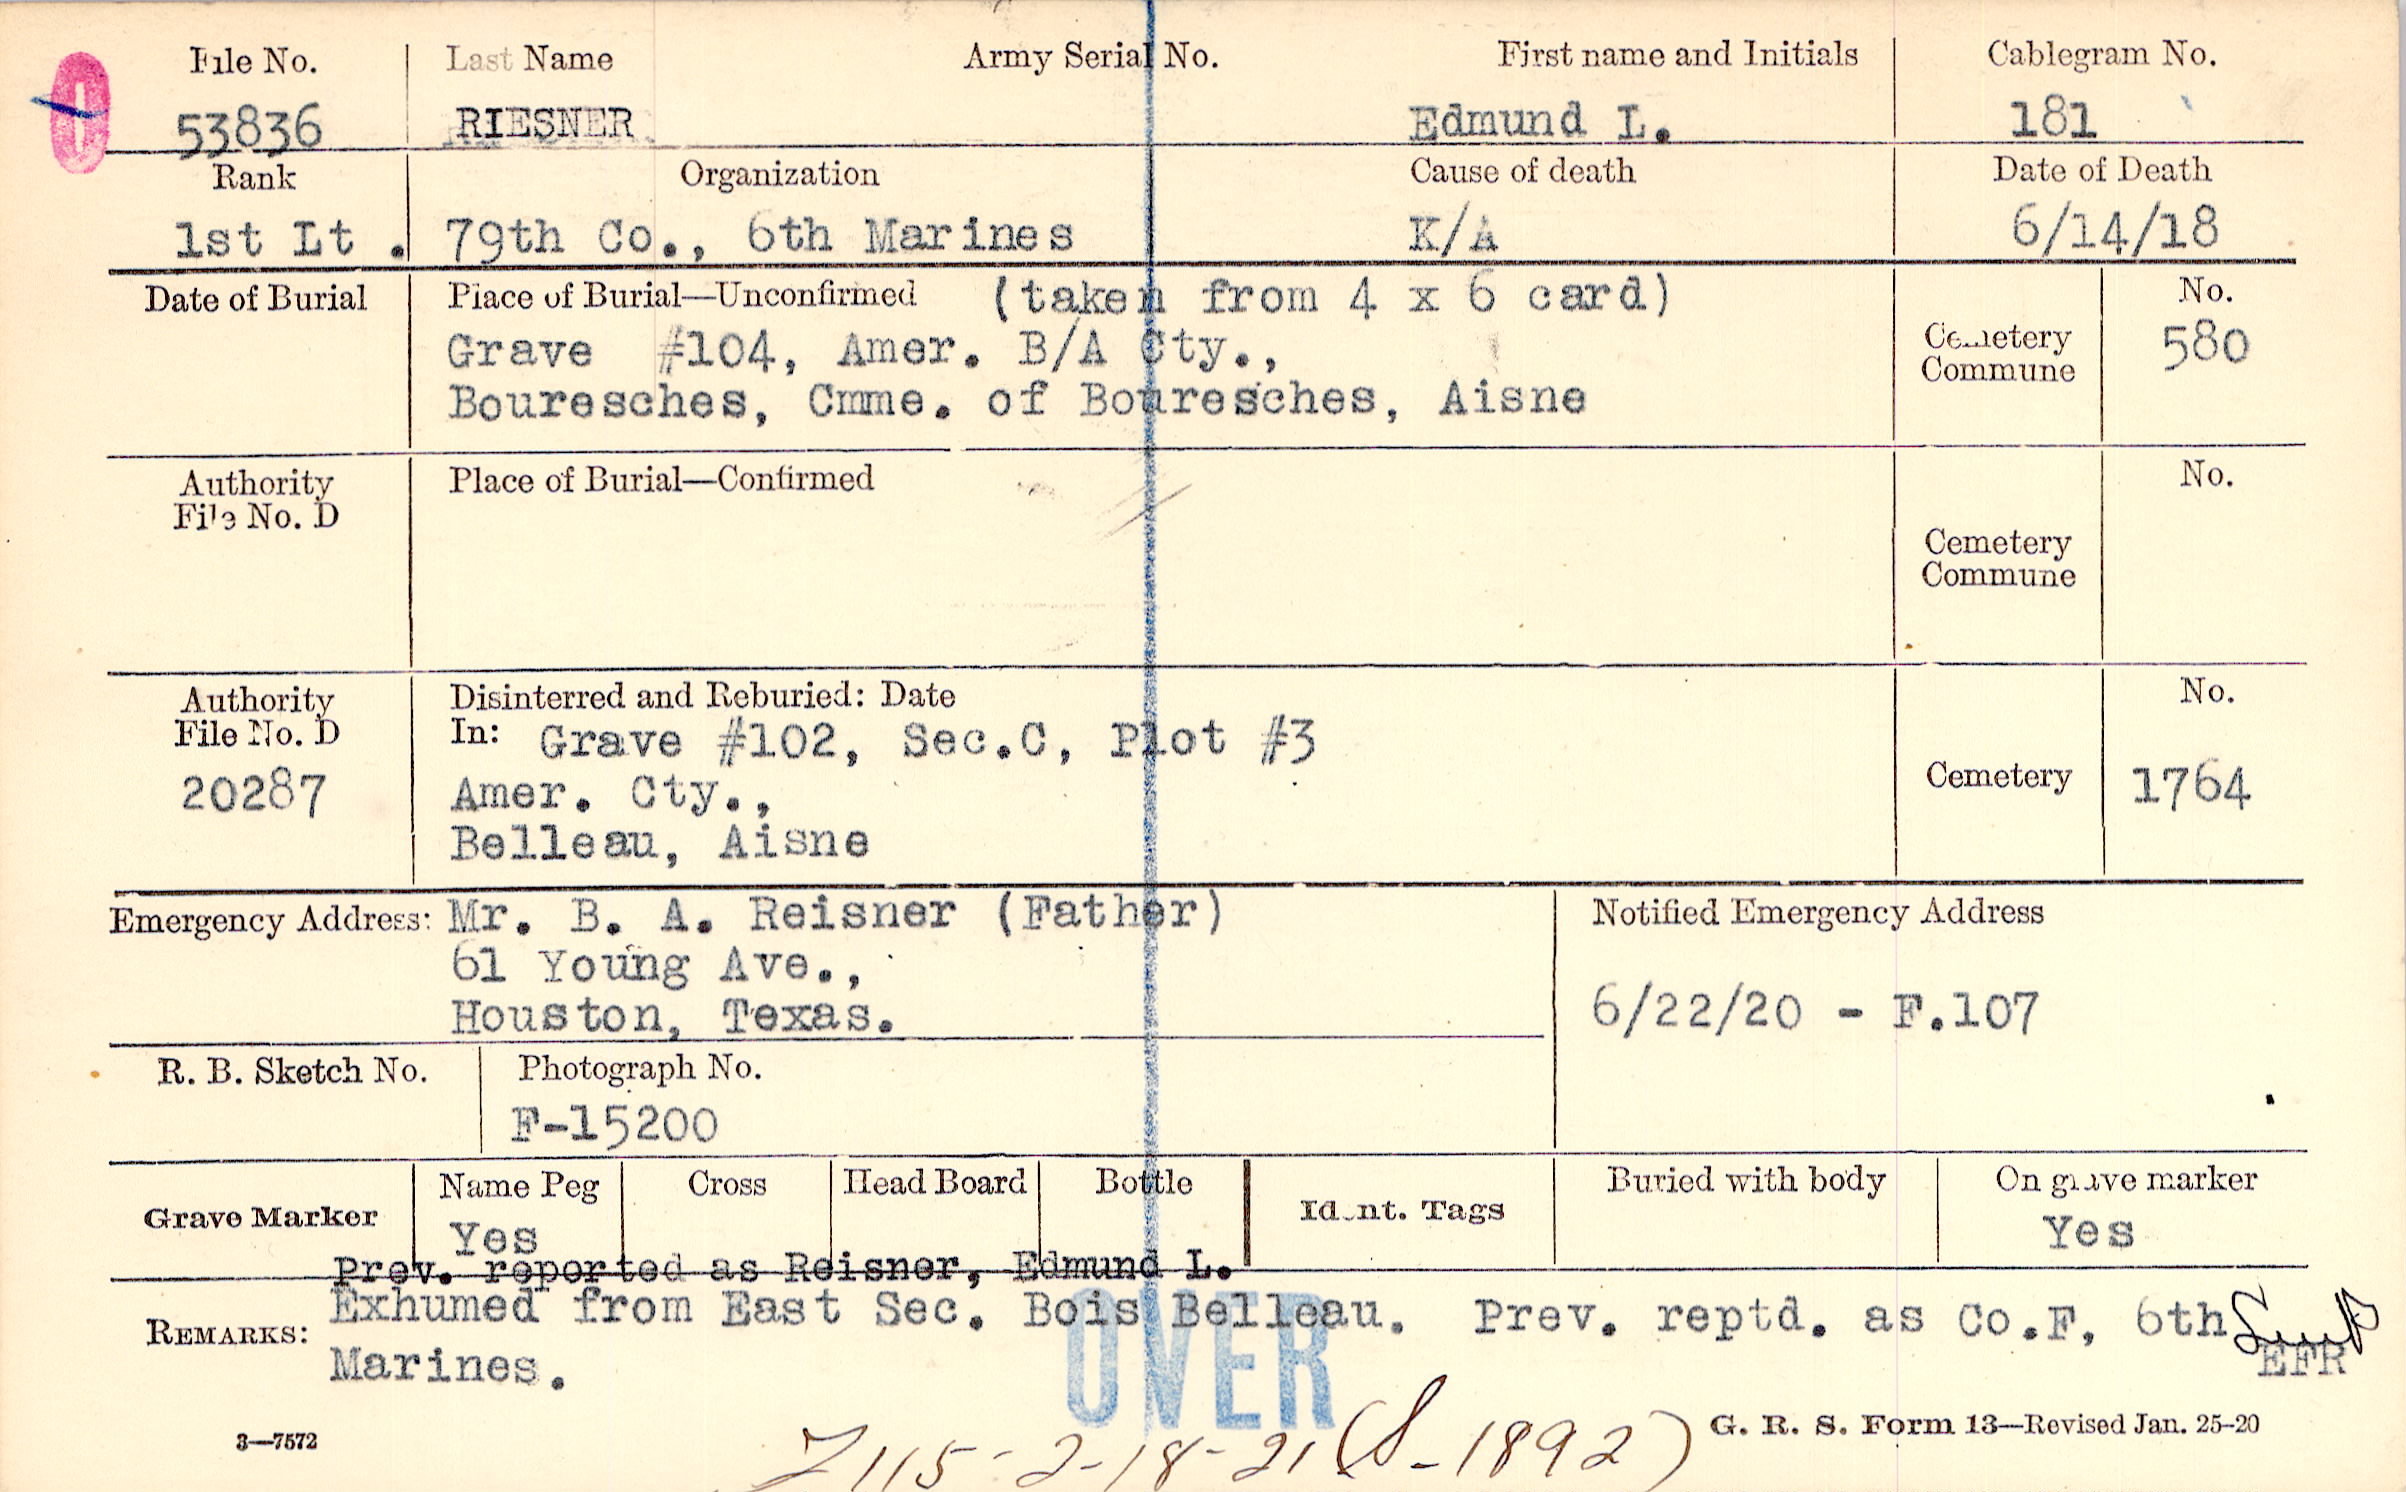 File No. Last Name Army Serial No. First name and Initials Cablegram No.
53836 RIESNER Edmund L. 181
Rank Organization Cause of death Date of Death
1st Lt. 79th Co., 6th Marines K/A 6/14/18
Date of Burial Place of Burial—Unconfirmed (taken from 4 x 6 card) No.
Grave #104, Amer. B/A Cty., Cemetery 580
Bouresches, Cmme. of Bouresches, Aisne Commune
Authority Place of Burial—Confirmed No.
File No. D
Cemetery
Commune
Authority Disinterred and Reburied: Date No.
File No. D In: Grave #102, Sec.C, Plot #3
20287 Amer. Cty., Cemetery 1764
Belleau, Aisne
Emergency Address: Mr. B. A. Reisner (Father) Notified Emergency Address
61 Young Ave.,
Houston, Texas. 6/22/20 - F.107
R. B. Sketch No. Photograph No.
F-15200
Grave Marker Name Peg Cross Head Board Bottle Ident. Tags Buried with body On grave marker
Yes Yes
Prev. reported as Reisner, Edmund L.
REMARKS: Exhumed from East Sec. Bois Belleau. Prev. reptd. as Co.F, 6th
Marines. EFR
OVER
3—7572 G. R. S. Form 13—Revised Jan. 25-20
115-2-18-21 (S-1892)